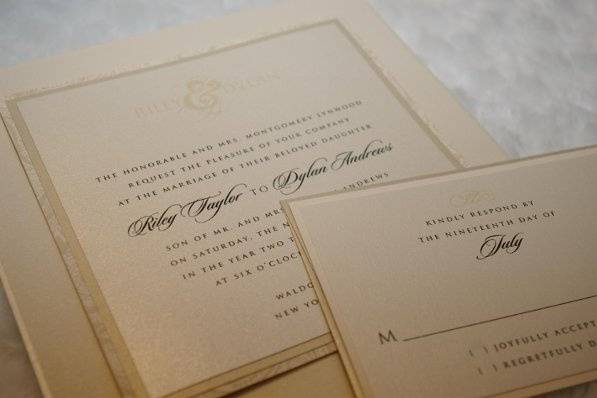 RILEY & DYLAN
THE HONORABLE AND MRS. MONTGOMERY LYNWOOD
REQUEST THE PLEASURE OF YOUR COMPANY
AT THE MARRIAGE OF THEIR BELOVED DAUGHTER
Riley Taylor TO Dylan Andrews
SON OF MR. AND MRS. ANDREWS
ON SATURDAY, THE N
IN THE YEAR TWO T
AT SIX O'CLOC
WALDO
NEW YO
KINDLY RESPOND BY
THE NINETEENTH DAY OF
July
M
( ) JOYFULLY ACCEPT
( ) REGRETFULLY D